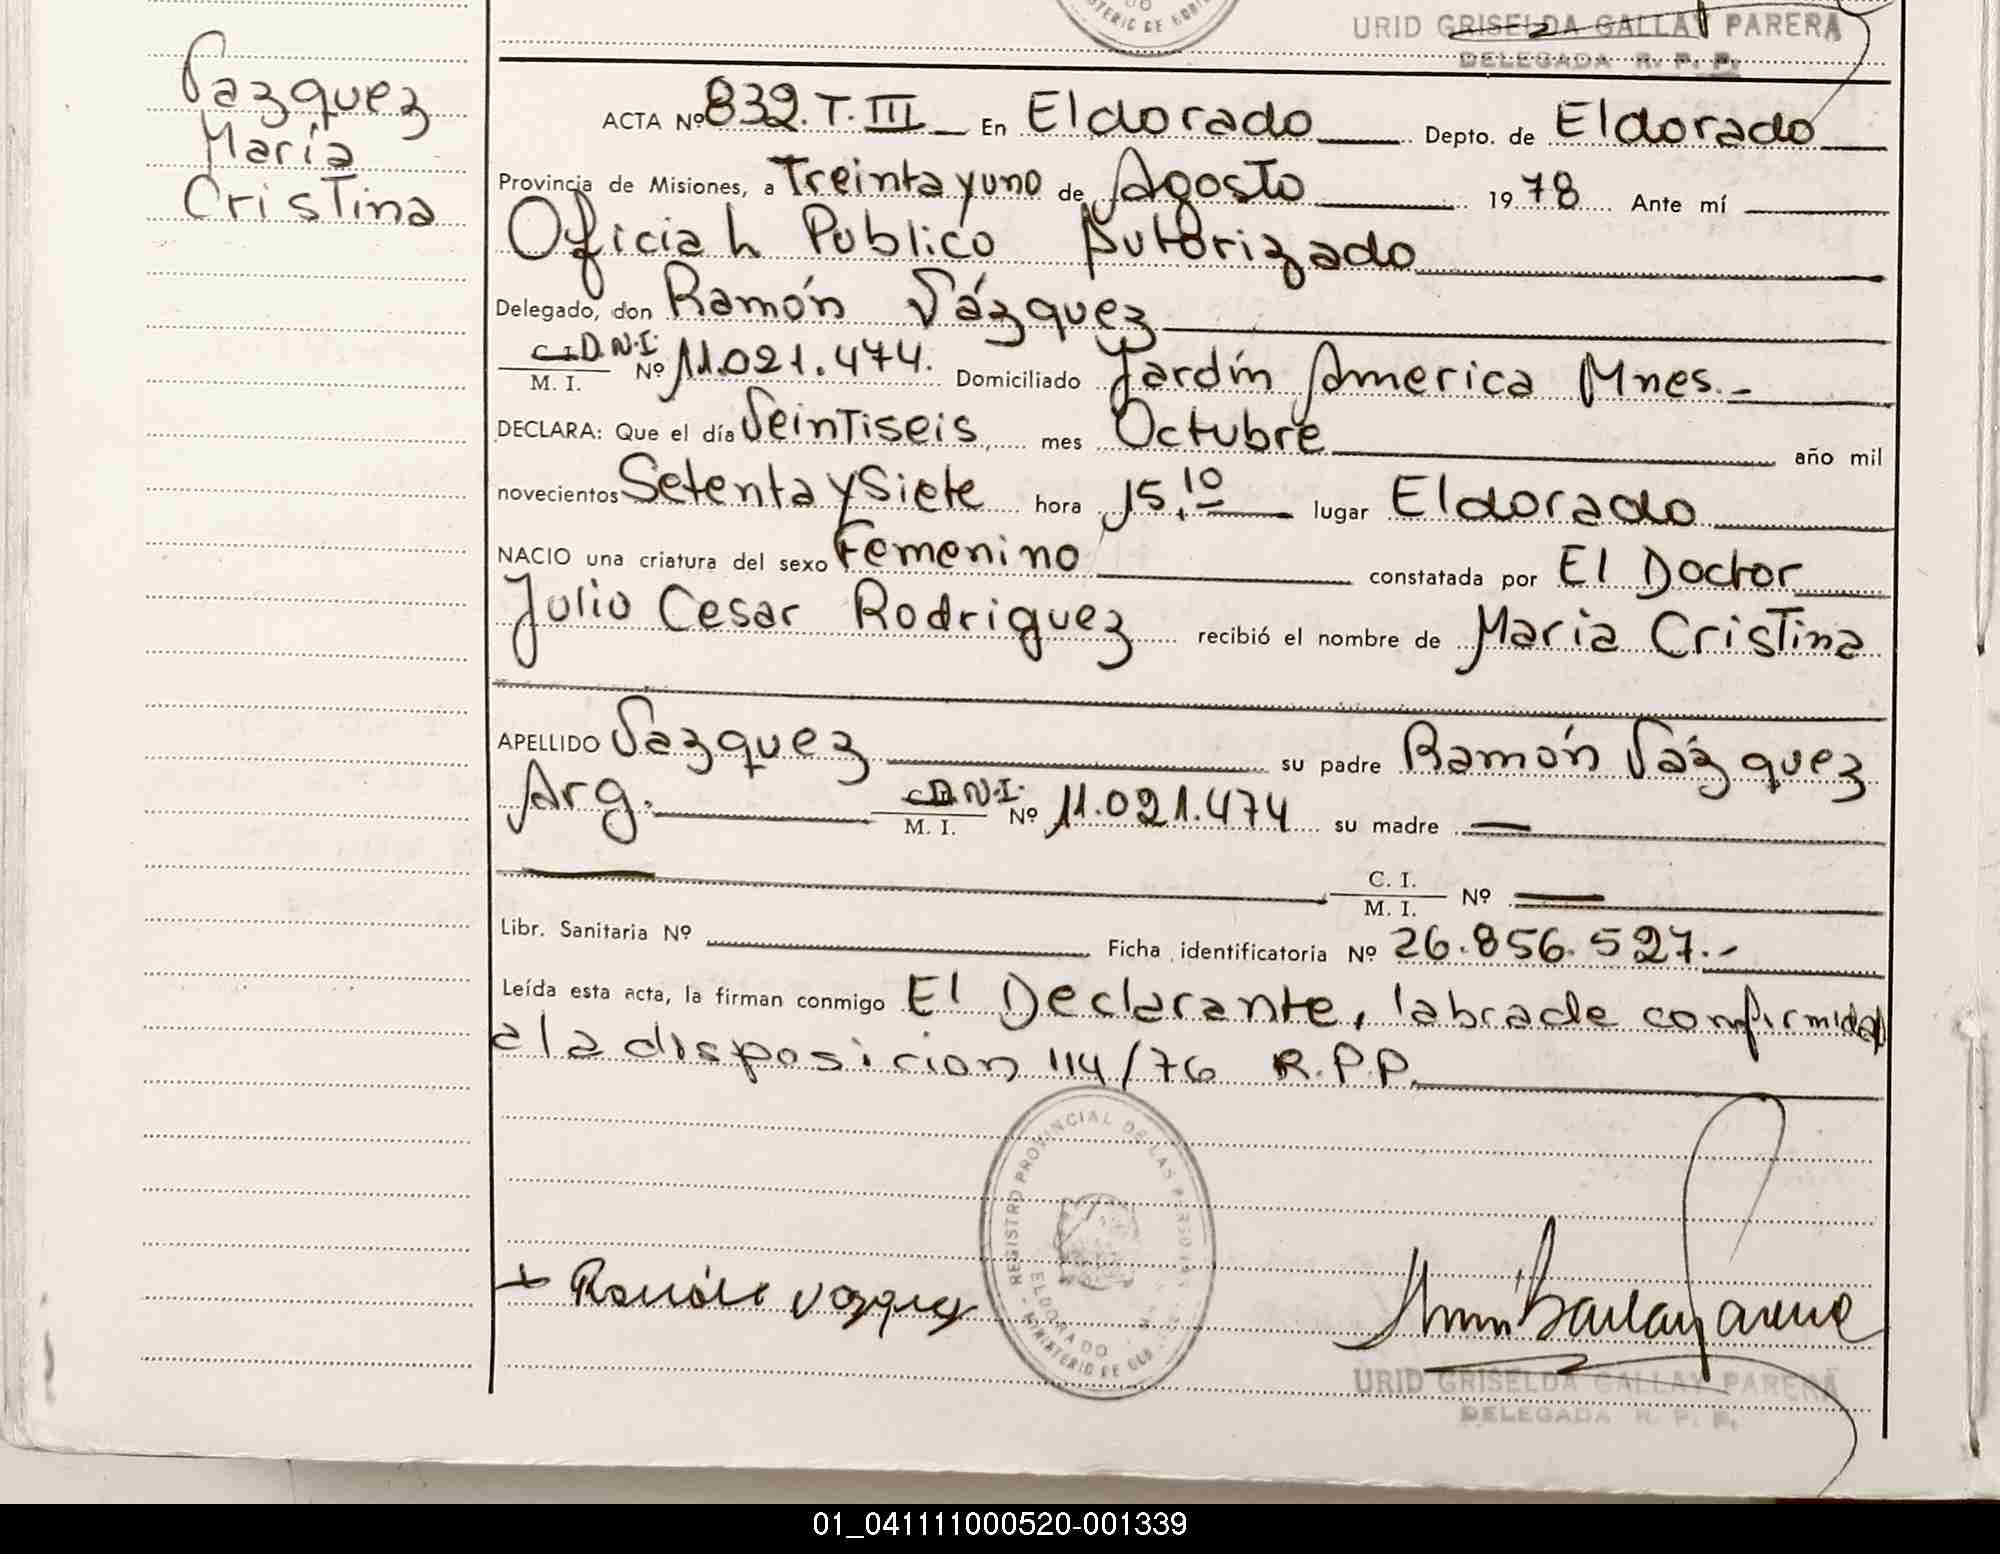 MINISTERIO DE GOBI
URID GRISELDA GALLAY PARERA
DELEGADA R. P. P.
Vazquez
Maria
Cristina
ACTA Nº 832. T. III En Eldorado Depto. de Eldorado
Provincia de Misiones, a Treinta y uno de Agosto 1978 Ante mí
Oficial Publico Autorizado
Delegado, don Ramón Vázquez
C.I. D.N.I. / M. I. Nº 11.021.474. Domiciliado Jardín America Mnes.-
DECLARA: Que el día Veintiseis mes Octubre año mil
novecientos Setenta y Siete hora 15,10 lugar Eldorado
NACIO una criatura del sexo Femenino constatada por El Doctor
Julio Cesar Rodriguez recibió el nombre de Maria Cristina
APELLIDO Vazquez su padre Ramón Vázquez
Arg. C.I. D.N.I. / M. I. Nº 11.021.474 su madre —
C. I. / M. I. Nº —
Libr. Sanitaria Nº Ficha identificatoria Nº 26.856.527.-
Leída esta acta, la firman conmigo El Declarante, labrada confirmidad
a la disposicion 114/76 R.P.P.
REGISTRO PROVINCIAL DE LAS PERSONAS
ELDORADO
MINISTERIO DE GOB
+ Ramón Vazquez
URID GRISELDA GALLAY PARERA
DELEGADA R. P. P.
01_041111000520-001339